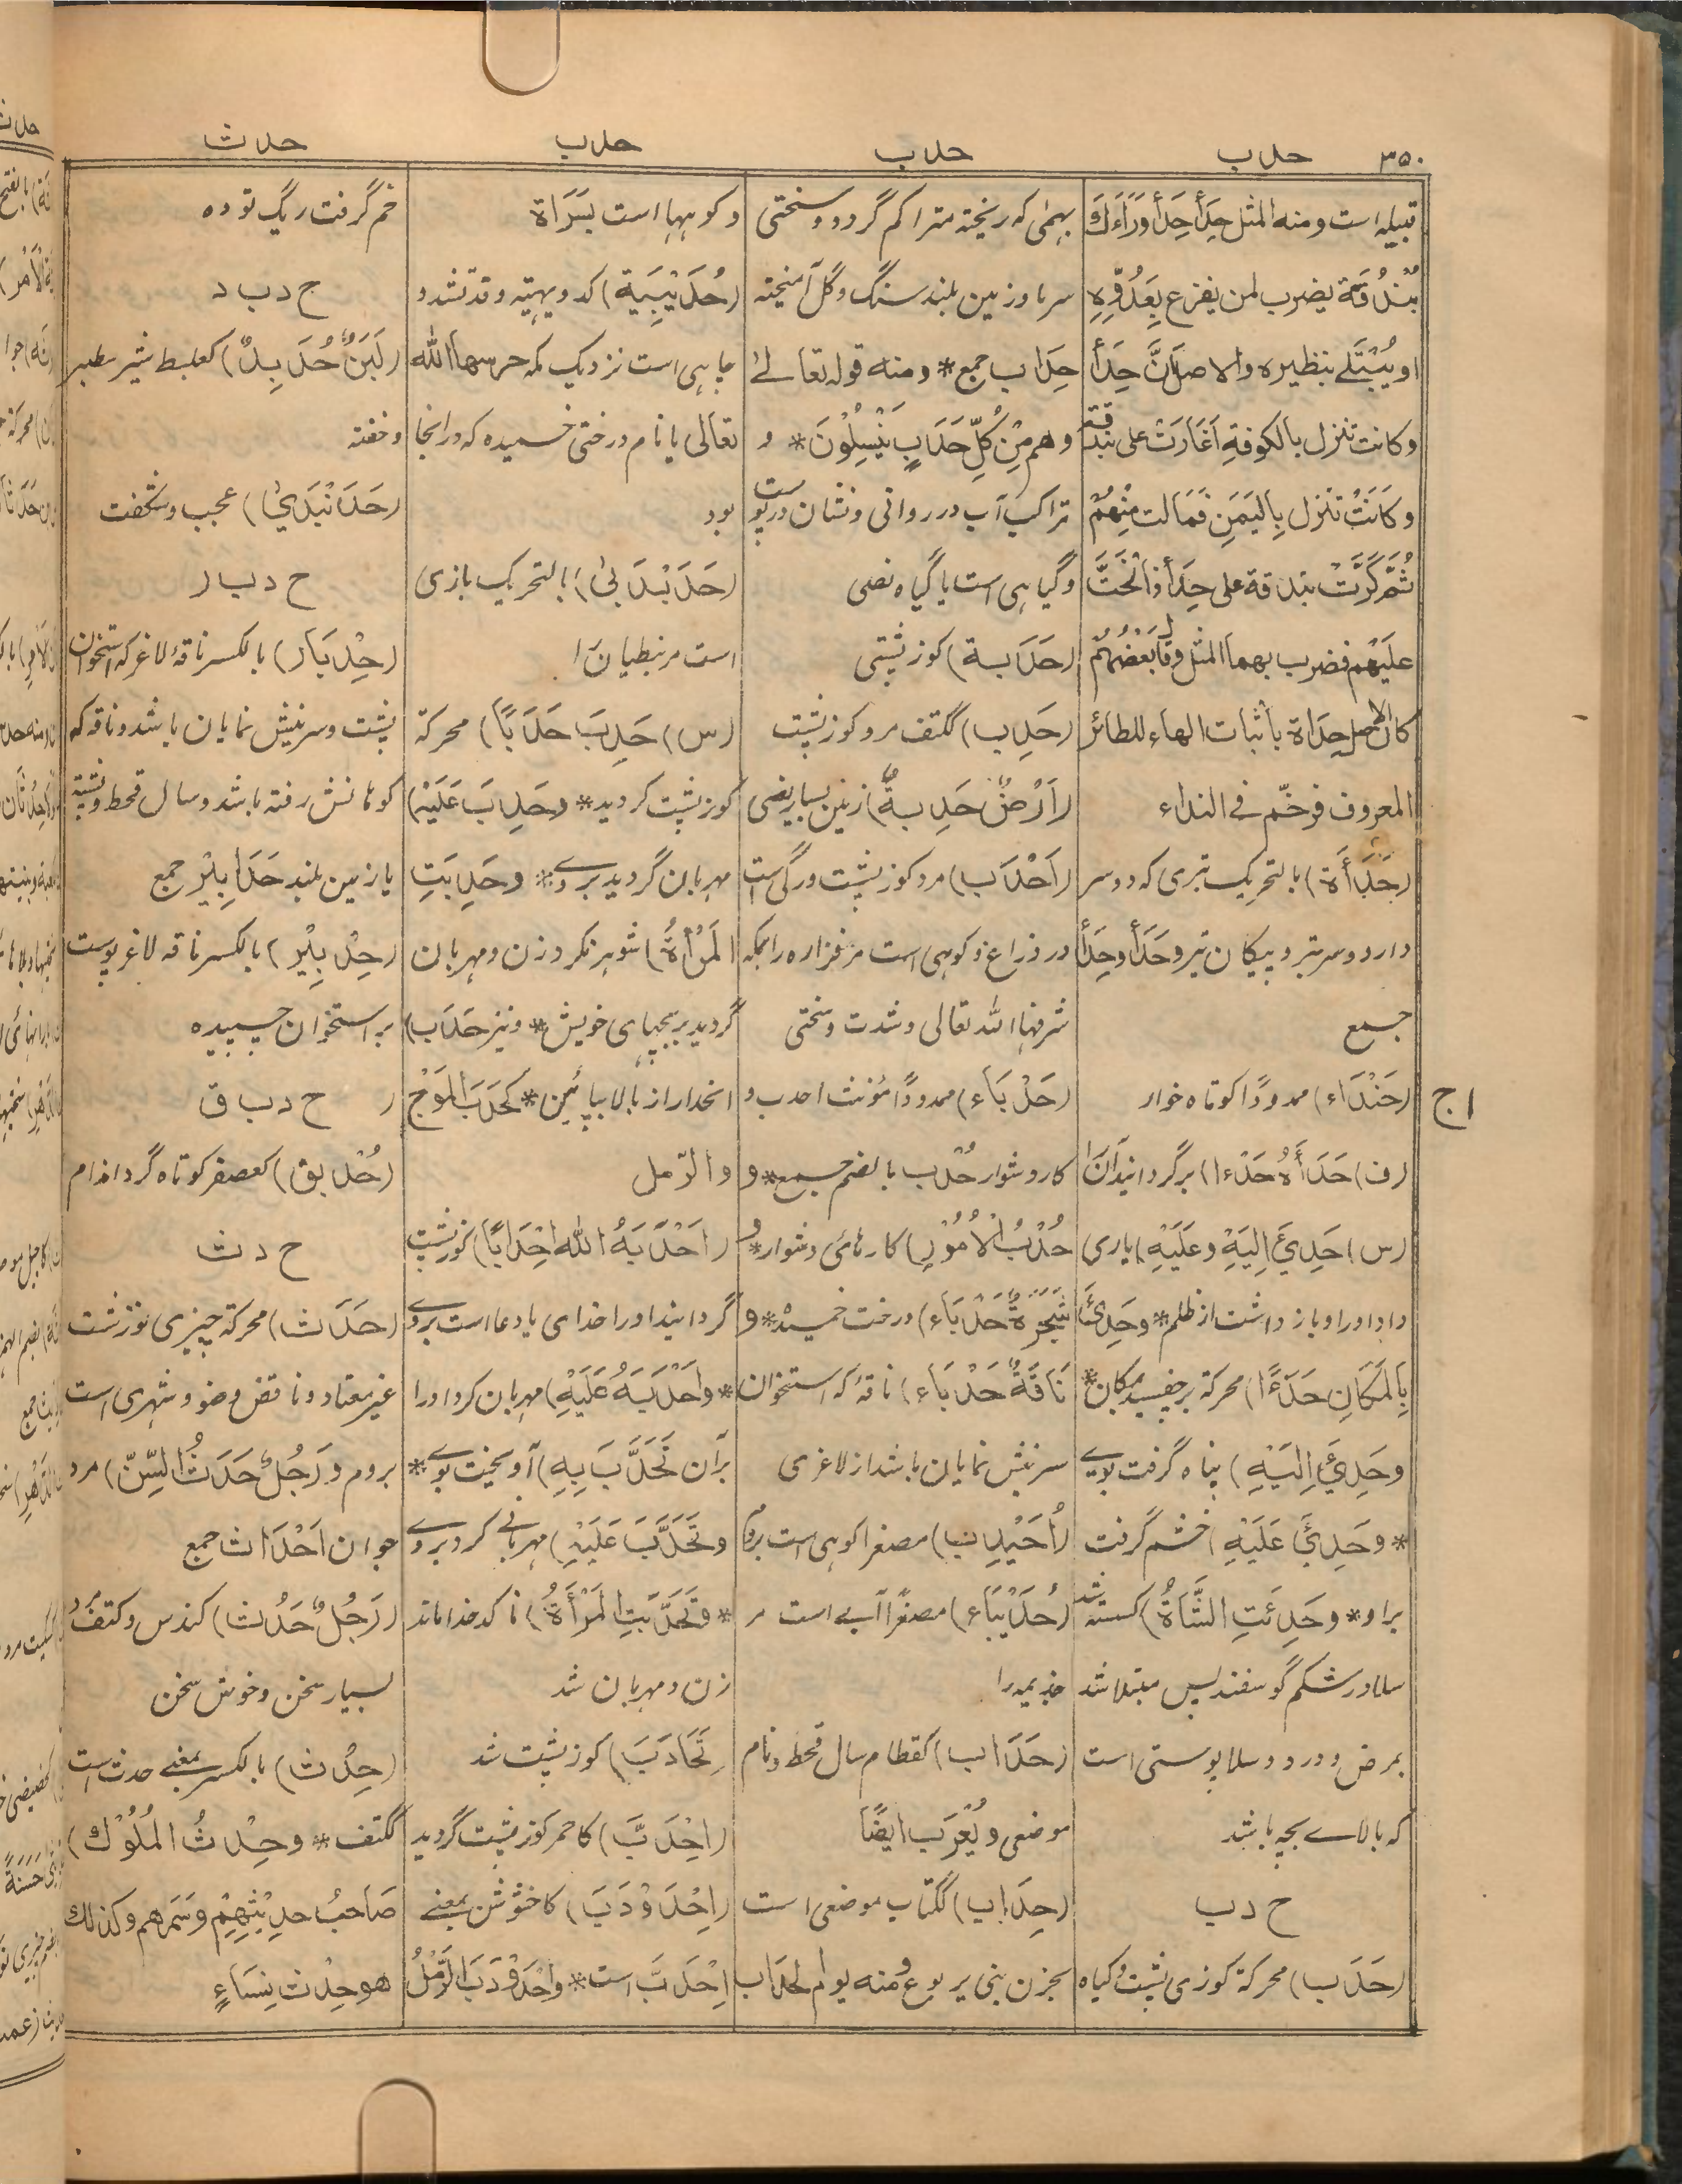 ۳۵۰
حدب
حدب
حدب
حدث
قبیله است ومنه المثل حِدَأَ حِدَأَ وَرَاءَكَ
بُنْدُقَةٌ یضرب لمن یفزع بِعَدُوِّهِ
او یُبْتَلے بنظیره والاصل اَنَّ حِدَأَ
وكانت تنزل بالكوفةِ اَغَارَتْ علی بندقة
وكَانَتْ تنزل بِالیَمَنِ فَنَالت مِنْهُمْ
ثُمَّ كَرَّتْ بندقة علی حِدَأَ فاَنْحَتَّ
علَیْهم فضرب بهما المثل وقَالَ بَعْضُهُمْ
كان الاصل حِدَاة باثبات الهاء للطائر
المعروف فرخّم فے النداء
(حَدَأَة) بالتحریک تبری که دو سر
دارد و سر تبر و پیکان تیر وحَدَأ وحِدَأ
جمع
(حَنْدَاء) ممدودًا کوتاه خوار
ا ج
(ف) حَدَأَهُ حَدْءا) برگردانید آنرا
(س) حَدِئَ اِلَیْهِ وعَلَیْهِ) یاری
داد او را و باز داشت از ظلم * وحَدِئَ
بِالمَكَانِ حَدَءًا) محرکة برچفسید بمکان *
وحَدِئَ اِلَیْهِ) پناه گرفت بویے
* وحَدِئَ عَلَیْهِ) خشم گرفت
براو * وحَدِئَتِ الشَّاةُ) گسسته شد
سلا در شکم گوسفند پس مبتلا شد
بمرض و درد و سلا پوستی است
که بالاے بچه باشد
ح د ب
(حَدَب) محرکة کوزی پشت و گیاه
بهمٰی که ریخته متراکم گردد و سختی
سرما و زمین بلند سنگ و گل آمیخته
حِدَاب جمع * ومنه قوله تعالےٰ
وهم مِنْ كُلِّ حَدَبٍ یَنْسِلُوْنَ * و
تراکب آب در روانی و نشان در پوست
و گیاهی است یا گیاه نصی
(حَدَبة) کوزپشتی
(حَدِب) ککتف مرد کوزپشت
(اَرْضٌ حَدِبةٌ) زمین بسیار نصی
(اَحْدَب) مرد کوزپشت و رگی است
در ذراع و کوهی است مر فزاره را بمکه
شرفها الله تعالی و شدت و سختی
(حَدْبَاء) ممدودًا مؤنث احدب و
کار دشوار حُدْب بالضم جمع * و
حُدْبُ الْاُمُوْرِ) کارهای دشوار * و
شَجَرَةٌ حَدْبَاء) درخت خمیده * و
نَاقَةٌ حَدْبَاء) ناقۀ که استخوان
سرینش نمایان باشد از لاغری
(اُحَیْدِب) مصغرا کوهی است بروم
(حُدَیْبَاء) مصغرًا آبے است مر
خذیمه را
(حَدَاب) کقطام سال قحط و نام
موضعی و یُعْرَب ایضًا
(حِدَاب) ککتاب موضعی است
بحزن بنی یربوع ومنه یوم الحداب
و کوهها است بسَرَاة
(حُدَیْبِیَة) کدویهیة وقد تشدد
چاهی است نزدیک مکه حرسها الله
تعالی یا نام درختی خمیده که در آنجا
بود
(حَدَبْدَبیٰ) بالتحریک بازی
است مر نبطیان را
(س) حَدِبَ حَدَبًا) محرکة
کوزپشت گردید * وحَدِبَ عَلَیْهِ)
مهربان گردید بروے * وحَدِبَتِ
المَرْأةُ) شوهر نکرد زن و مهربان
گردید بر بچهای خویش * و نیز حَدَب)
انحدار از بالا بپائین * كَحَدَبَ المَوْج
والرّمل
(اَحْدَبَهُ الله اِحْدَابًا) کوزپشت
گردانید او را خدای یا دعا است بروے
* واَحْدَبَهُ عَلَیْهِ) مهربان کرد او را
بر آن تَحَدَّبَ بِهِ) آویخت بوے *
وتَحَدَّبَ عَلَیْهِ) مهربانے کرد بروے
* وتَحَدَّبَتِ المَرْأَةُ) ناکدخدا ماند
زن و مهربان شد
(تَحَادَبَ) کوزپشت شد
(اِحْدَبَّ) کاحمر کوزپشت گردید
(اِحْدَوْدَبَ) کاخشوشن بمعنے
اِحْدَبَّ است * واحْدَوْدَبَ الرَّمْلُ
خم گرفت ریگ توده
ح د ب د
(لَبَنٌ حُدَبِدٌ) کعلبط شیر سطبر
و خفته
(حَدَنْبَدیٰ) عجب و شگفت
ح د ب ا ر
(حِدْبَار) بالکسر ناقۀ لاغر که استخوان
پشت و سرینش نمایان باشد و ناقه که
کوهانش رفته باشد و سال قحط و پشته
یا زمین بلند حَدَابِیْر جمع
(حِدْبِیْر) بالکسر ناقه لاغر پوست
بر استخوان چسپیده
ح د ب ق
(حُدْبق) کعصفر کوتاه گرد اندام
ح د ث
(حَدَث) محرکة چیزی نو زشت
غیر معتاد و ناقض وضو و شهری است
بروم و رَجُلٌ حَدَثُ السِّنّ) مرد
جوان اَحْدَاث جمع
(رَجُلٌ حَدُث) کندس و کتف مرد
بسیار سخن و خوش سخن
(حِدْث) بالکسر بمعنے حدث است
ککتف * وحِدْثُ المُلُوْك)
صَاحبُ حدِیْثِهِمْ وسَمَرهم وكذلك
هو حِدْث نِسَاءٍ